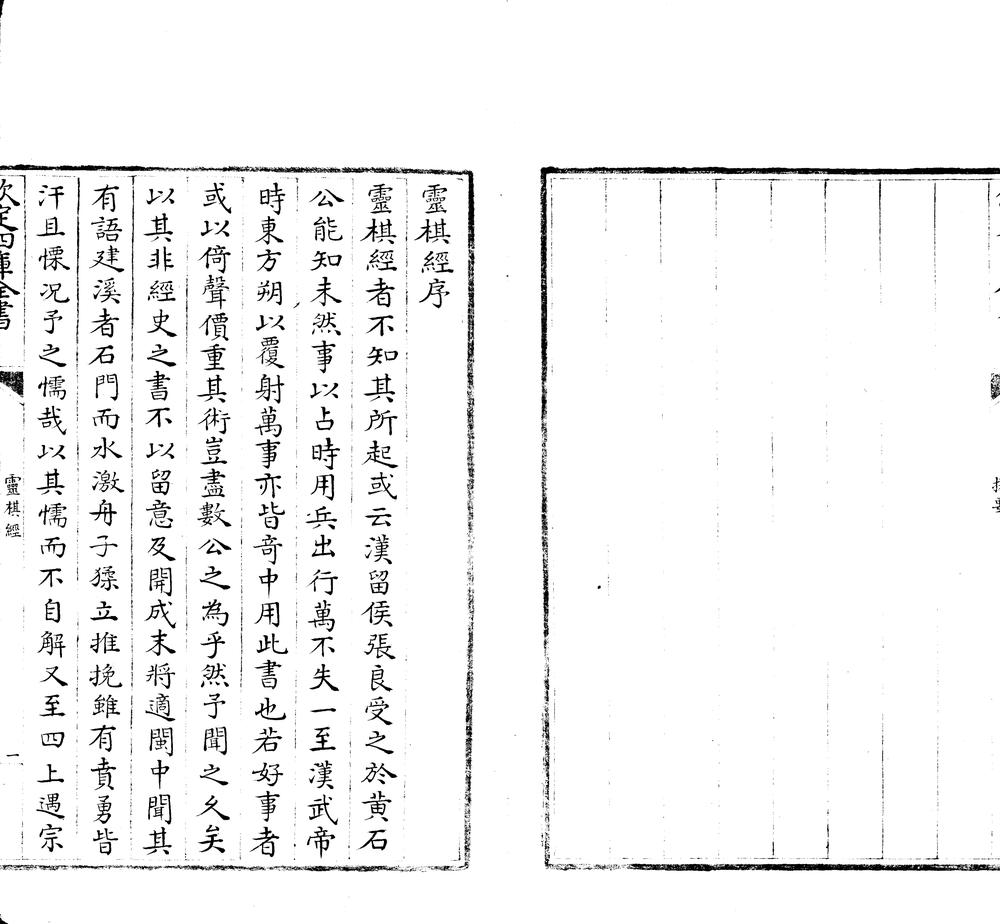 靈棋經序
靈棋經者不知其所起或云漢留侯張良受之於黄石
公能知未然事以占時用兵出行萬不失一至漢武帝
時東方朔以覆射萬事亦皆竒中用此書也若好事者
或以倚聲價重其術豈盡數公之為乎然予聞之乆矣
以其非經史之書不以留意及開成末將適閩中聞其
有語建溪者石門而水激舟子猱立推挽雖有賁勇皆
汗且慄况予之懦哉以其懦而不自解又至四上遇宗
欽定四庫全書
靈棋經
一